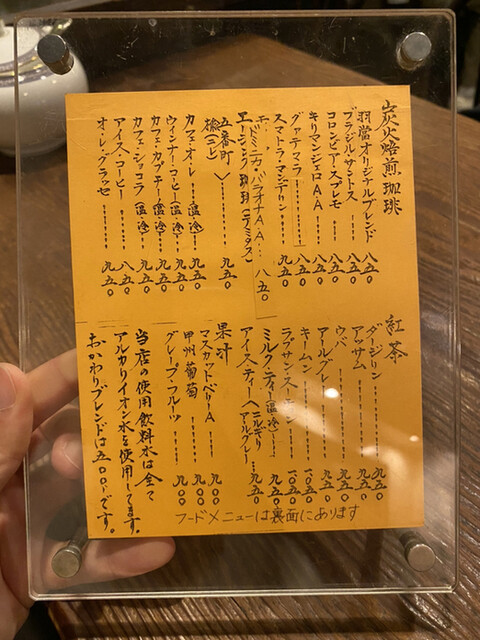 炭火焙煎珈琲
羽當オリジナルブレンド 八五〇
ブラジル・サントス 八五〇
コロンビア・スプレモ 八五〇
キリマンジァロAA 八五〇
グァテマラ 八五〇
スマトラ・マンデリン 九五〇
ドミニカ・バラオナAA 八五〇
エージング珈琲（デミタス）
五番町 九五〇
カフェ・オ・レ（温・冷） 九五〇
ウィンナー・コーヒー（温・冷） 九五〇
カフェ・カプチーノ（温・冷） 九五〇
カフェ・ショコラ（温・冷） 九五〇
アイス・コーヒー 八五〇
オ・レ・グラッセ 九五〇
紅茶
ダージリン 九五〇
アッサム 九五〇
ウバ 九五〇
アールグレイ 九五〇
キームン 一〇五〇
ラプサン・スーチョン 一〇五〇
ミルク・ティー（温・冷） 九五〇
アイス・ティー〈ニルギリ アールグレー 九五〇
果汁
マスカットベリーA 九〇〇
甲州葡萄 九〇〇
グレープ・フルーツ 九〇〇
当店の使用飲料水は全て
アルカリイオン水を使用してます。
おかわりブレンドは五〇〇円です。
フードメニューは裏面にあります